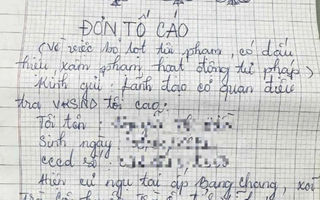 ĐƠN TỐ CÁO
(Về việc bỏ lọt tội phạm, có dấu
hiệu xâm phạm hoạt động tư pháp)
Kính gửi: Lãnh đạo cơ quan điều
tra VKSND tối cao.
Tôi tên:
Sinh ngày
CCCD số:
Hiện cư ngụ tại ấp Bang chang, xã